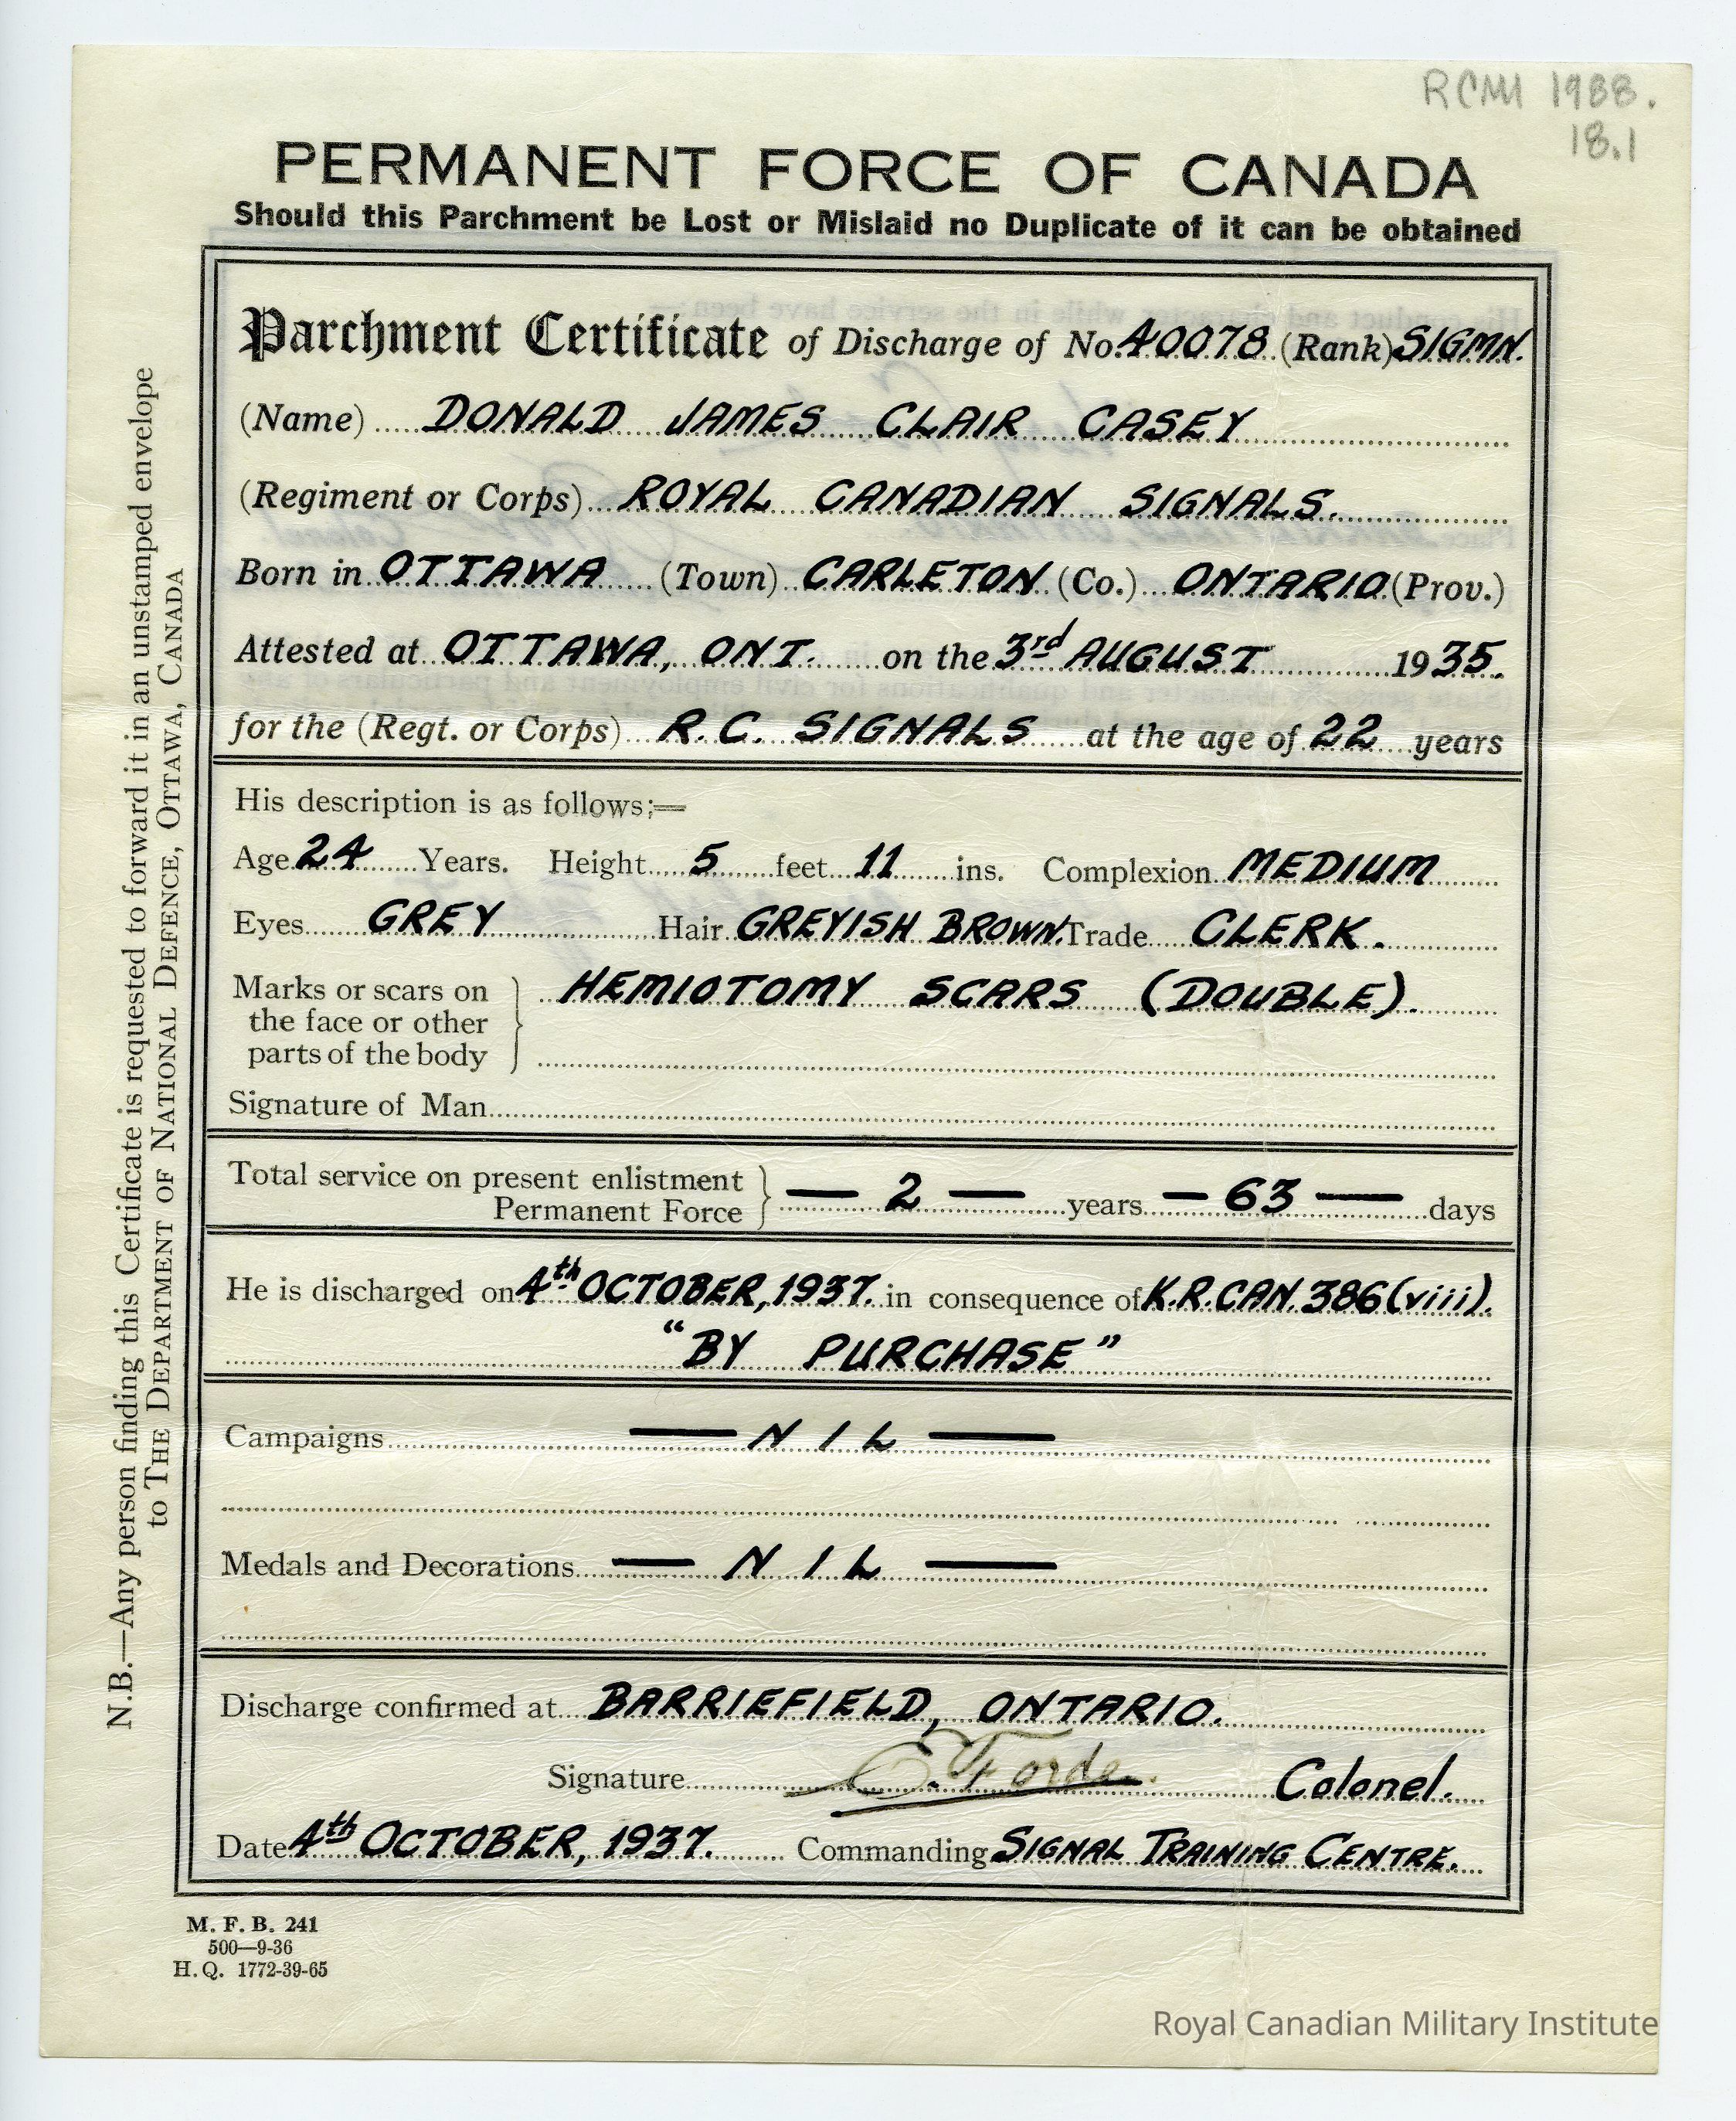 RCMI 1988.
18.1
PERMANENT FORCE OF CANADA
Should this Parchment be Lost or Mislaid no Duplicate of it can be obtained
Parchment Certificate of Discharge of No. A0078 (Rank) SIGMN.
(Name) DONALD JAMES CLAIR CASEY
(Regiment or Corps) ROYAL CANADIAN SIGNALS.
Born in OTTAWA (Town) CARLETON (Co.) ONTARIO (Prov.)
Attested at OTTAWA, ONT. on the 3rd AUGUST 1935.
for the (Regt. or Corps) R.C. SIGNALS at the age of 22 years
His description is as follows:—
Age 24 Years. Height 5 feet 11 ins. Complexion MEDIUM
Eyes GREY Hair GREYISH BROWN. Trade CLERK.
Marks or scars on
the face or other
parts of the body
HEMIOTOMY SCARS (DOUBLE).
Signature of Man
Total service on present enlistment
Permanent Force
— 2 — years — 63 — days
He is discharged on 4th OCTOBER, 1937. in consequence of K.R.CAN. 386 (viii).
"BY PURCHASE"
Campaigns — NIL —
Medals and Decorations — NIL —
Discharge confirmed at BARRIEFIELD, ONTARIO.
Signature E. Forde. Colonel.
Date 4th OCTOBER, 1937. Commanding SIGNAL TRAINING CENTRE.
N.B.—Any person finding this Certificate is requested to forward it in an unstamped envelope
to THE DEPARTMENT OF NATIONAL DEFENCE, OTTAWA, CANADA
M. F. B. 241
500—9-36
H. Q. 1772-39-65
Royal Canadian Military Institute